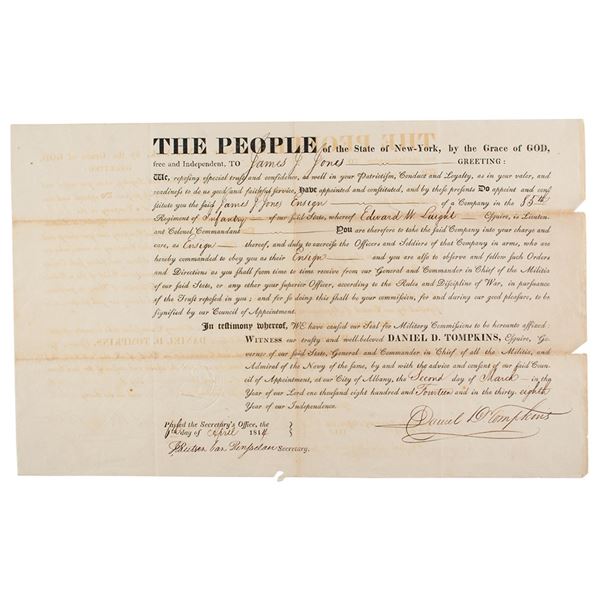 THE PEOPLE of the State of New-York, by the Grace of GOD,
free and Independent, TO James J. Jones GREETING:
We, reposing special trust and confidence, as well in your Patriotism, Conduct and Loyalty, as in your valor, and
readiness to do us good and faithful service, Have appointed and constituted, and by these presents Do appoint and con-
stitute you the said James J. Jones Ensign of a Company in the 85th
Regiment of Infantry of our said State, whereof Edward W. Laight Esquire, is Lieuten-
ant Colonel Commandant You are therefore to take the said Company into your charge and
care, as Ensign thereof, and duly to exercise the Officers and Soldiers of that Company in arms, who are
hereby commanded to obey you as their Ensign and you are also to observe and follow such Orders
and Directions as you shall from time to time receive from our General and Commander in Chief of the Militia
of our said State, or any other your Superior Officer, according to the Rules and Discipline of War, in pursuance
of the Trust reposed in you; and for so doing this shall be your commission, for and during our good pleasure, to be
signified by our Council of Appointment.
In testimony whereof, WE have caused our Seal for Military Commissions to be hereunto affixed:
WITNESS our trusty and well-beloved DANIEL D. TOMPKINS, Esquire, Go-
vernor of our said State, General and Commander in Chief of all the Militia, and
Admiral of the Navy of the same, by and with the advice and consent of our said Coun-
cil of Appointment, at our City of Albany, the Second day of March in the
Year of our Lord one thousand eight hundred and Fourteen and in the thirty eighth
Year of our Independence.
Passed the Secretary's Office, the
day of April 1814
Daniel D Tompkins
J Rutsen Van Rensselaer Secretary.